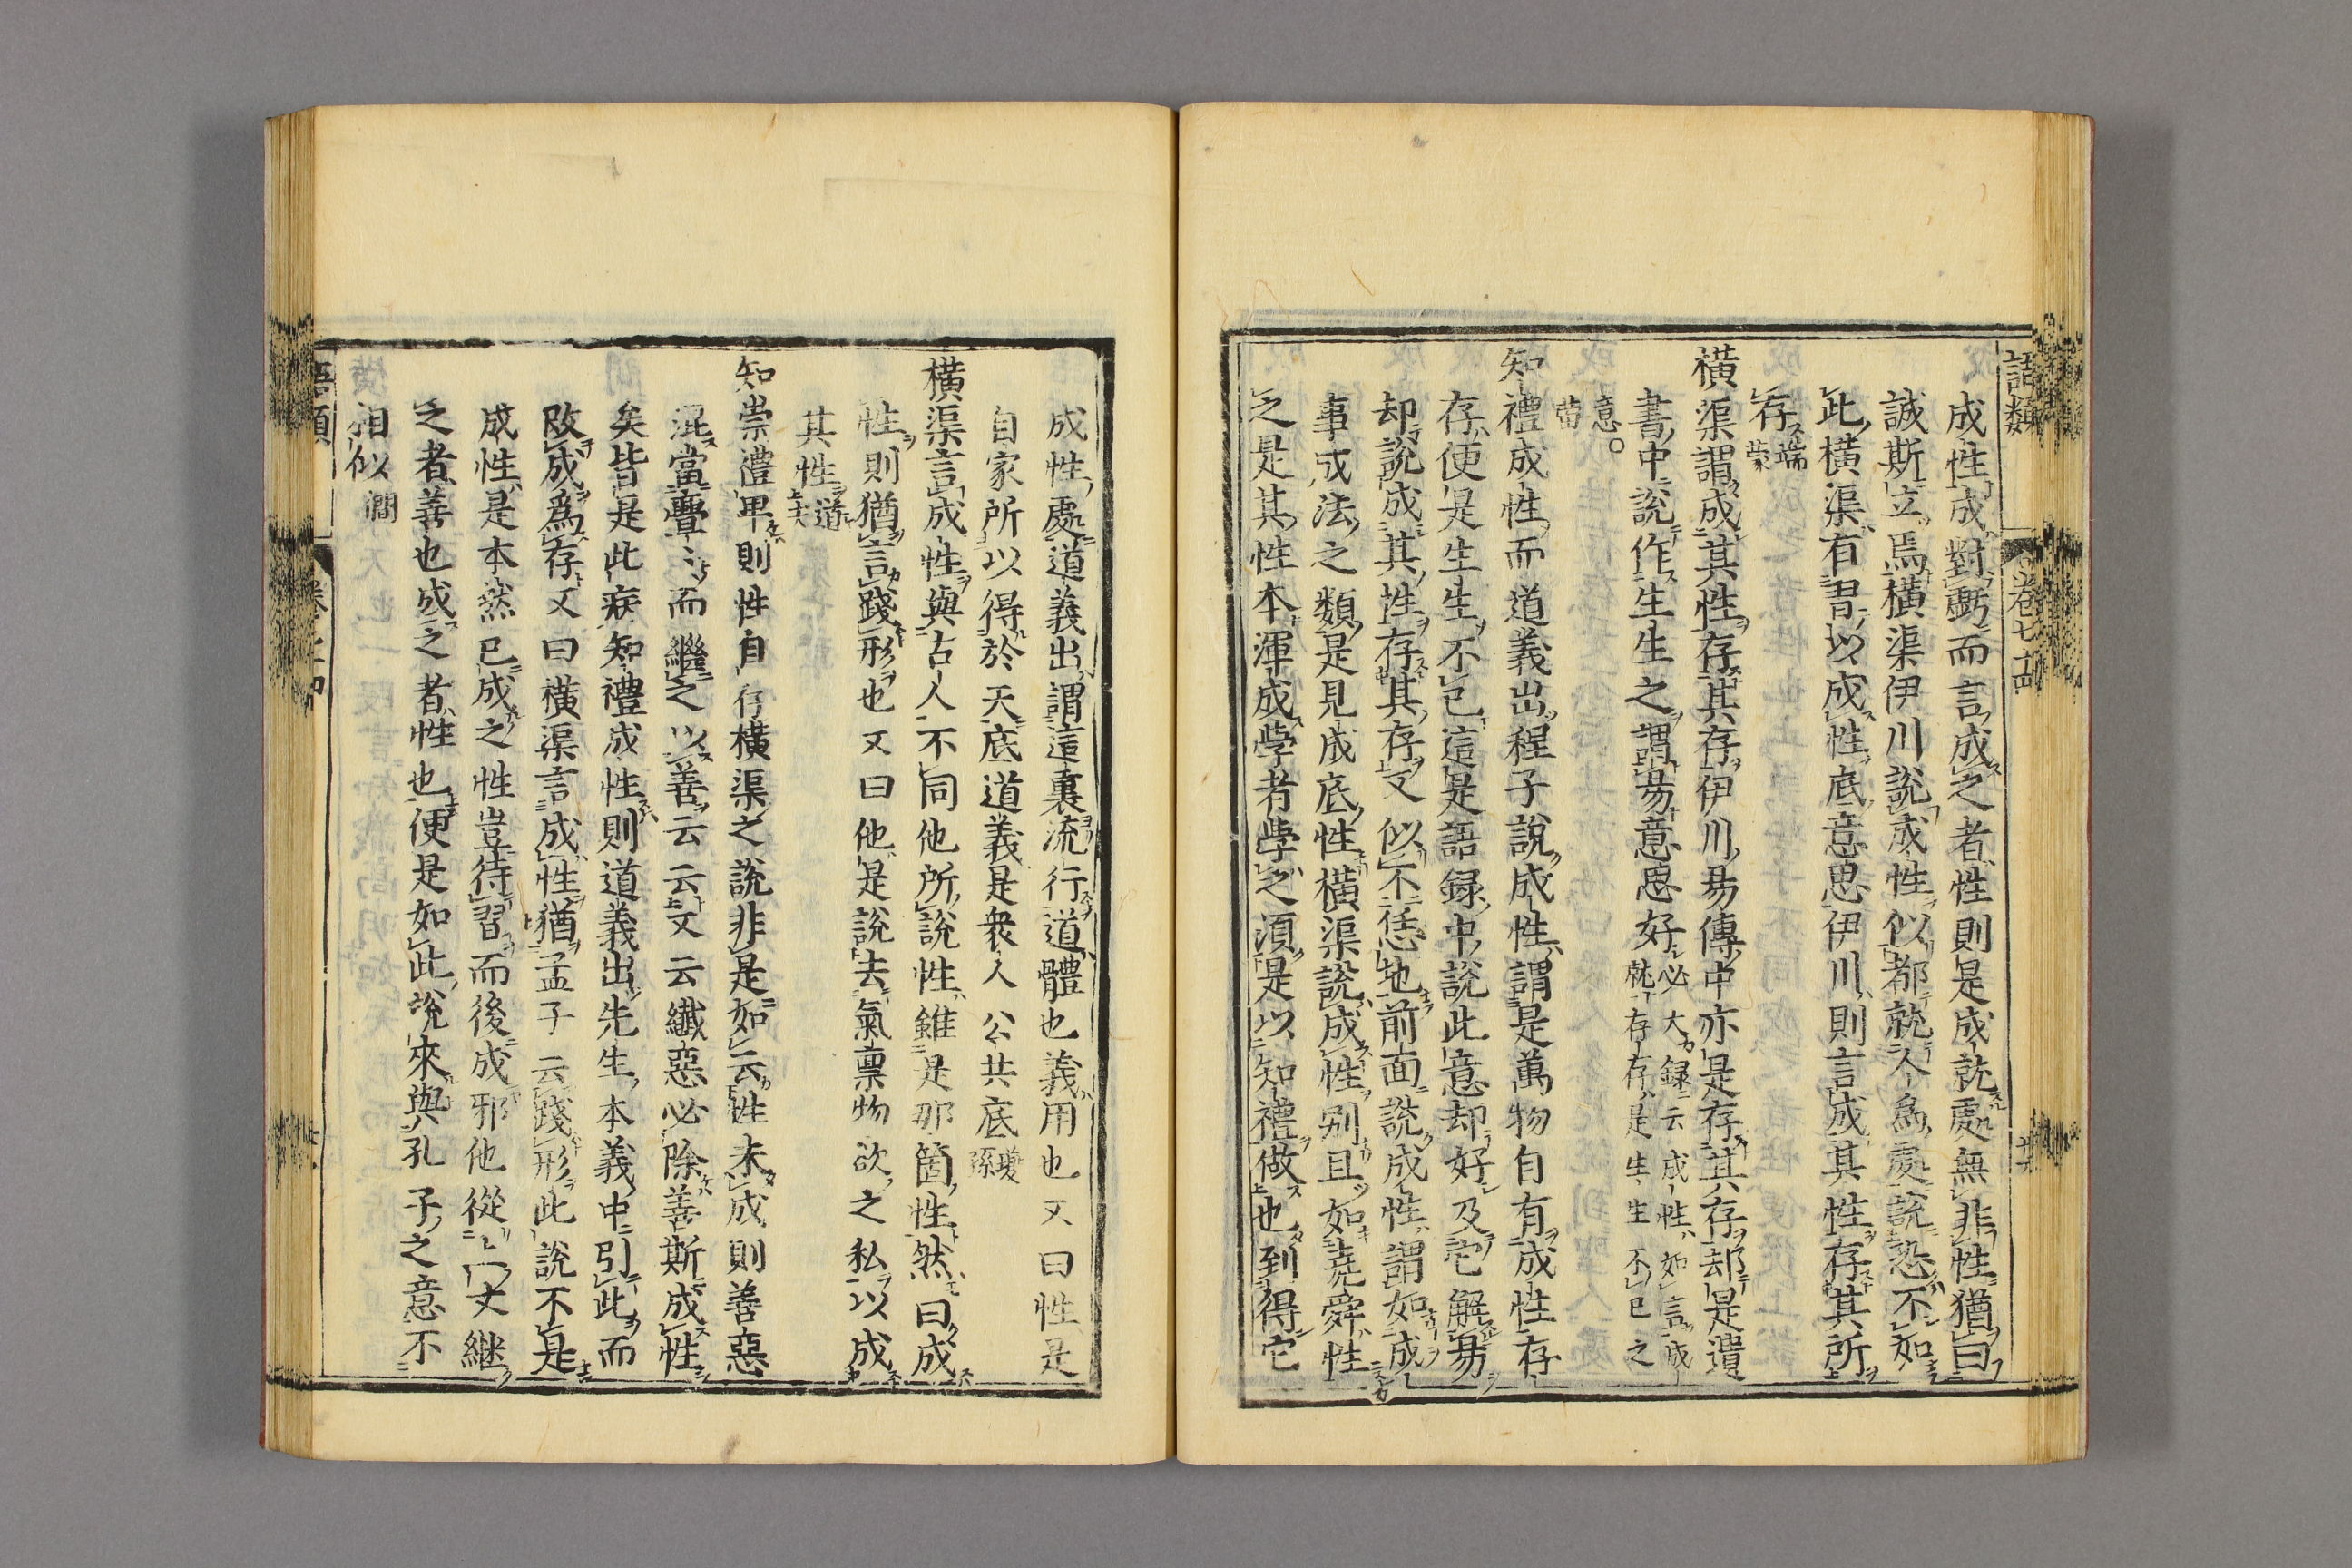 語類 卷七十四 廿六
成性成對虧而言成之者性則是成就處無非性猶曰
誠斯立焉橫渠伊川說成性似都就人爲處說恐不如
此橫渠有習以成性底意思伊川則言成其性存其所
存端蒙
橫渠謂成其性存其存伊川易傳中亦是存其存却是遺
書中說作生生之謂易意思好必大録云成性如言成就存存是生生不已之
意。㽦
知禮成性而道義出程子說成性謂是萬物自有成性存
存便是生生不已這是語録中說此意却好及它解易
却說成其性存其存又似不恁地前面說成性謂如成
事成法之類是見成底性橫渠說成性别且如堯舜性
之是其性本渾成學者學之須是以知禮做也到得它
成性處道義出謂這裏流行道體也義用也又曰性是
自家所以得於天底道義是衆人公共底夔孫
橫渠言成性與古人不同他所說性雖是那箇性然曰成
性則猶言踐形也又曰他是說去氣禀物欲之私以成
其性道夫
知崇禮卑則性自存橫渠之說非是如云性未成則善惡
混當亹亹而繼之以善云云又云纖惡必除善斯成性
矣皆是此病知禮成性則道義出先生本義中引此而
改成爲存又曰橫渠言成性猶孟子云踐形此說不是
成性是本然已成之性豈待習而後成邪他從上文繼
之者善也成之者性也便是如此說來與孔子之意不
相似㵎